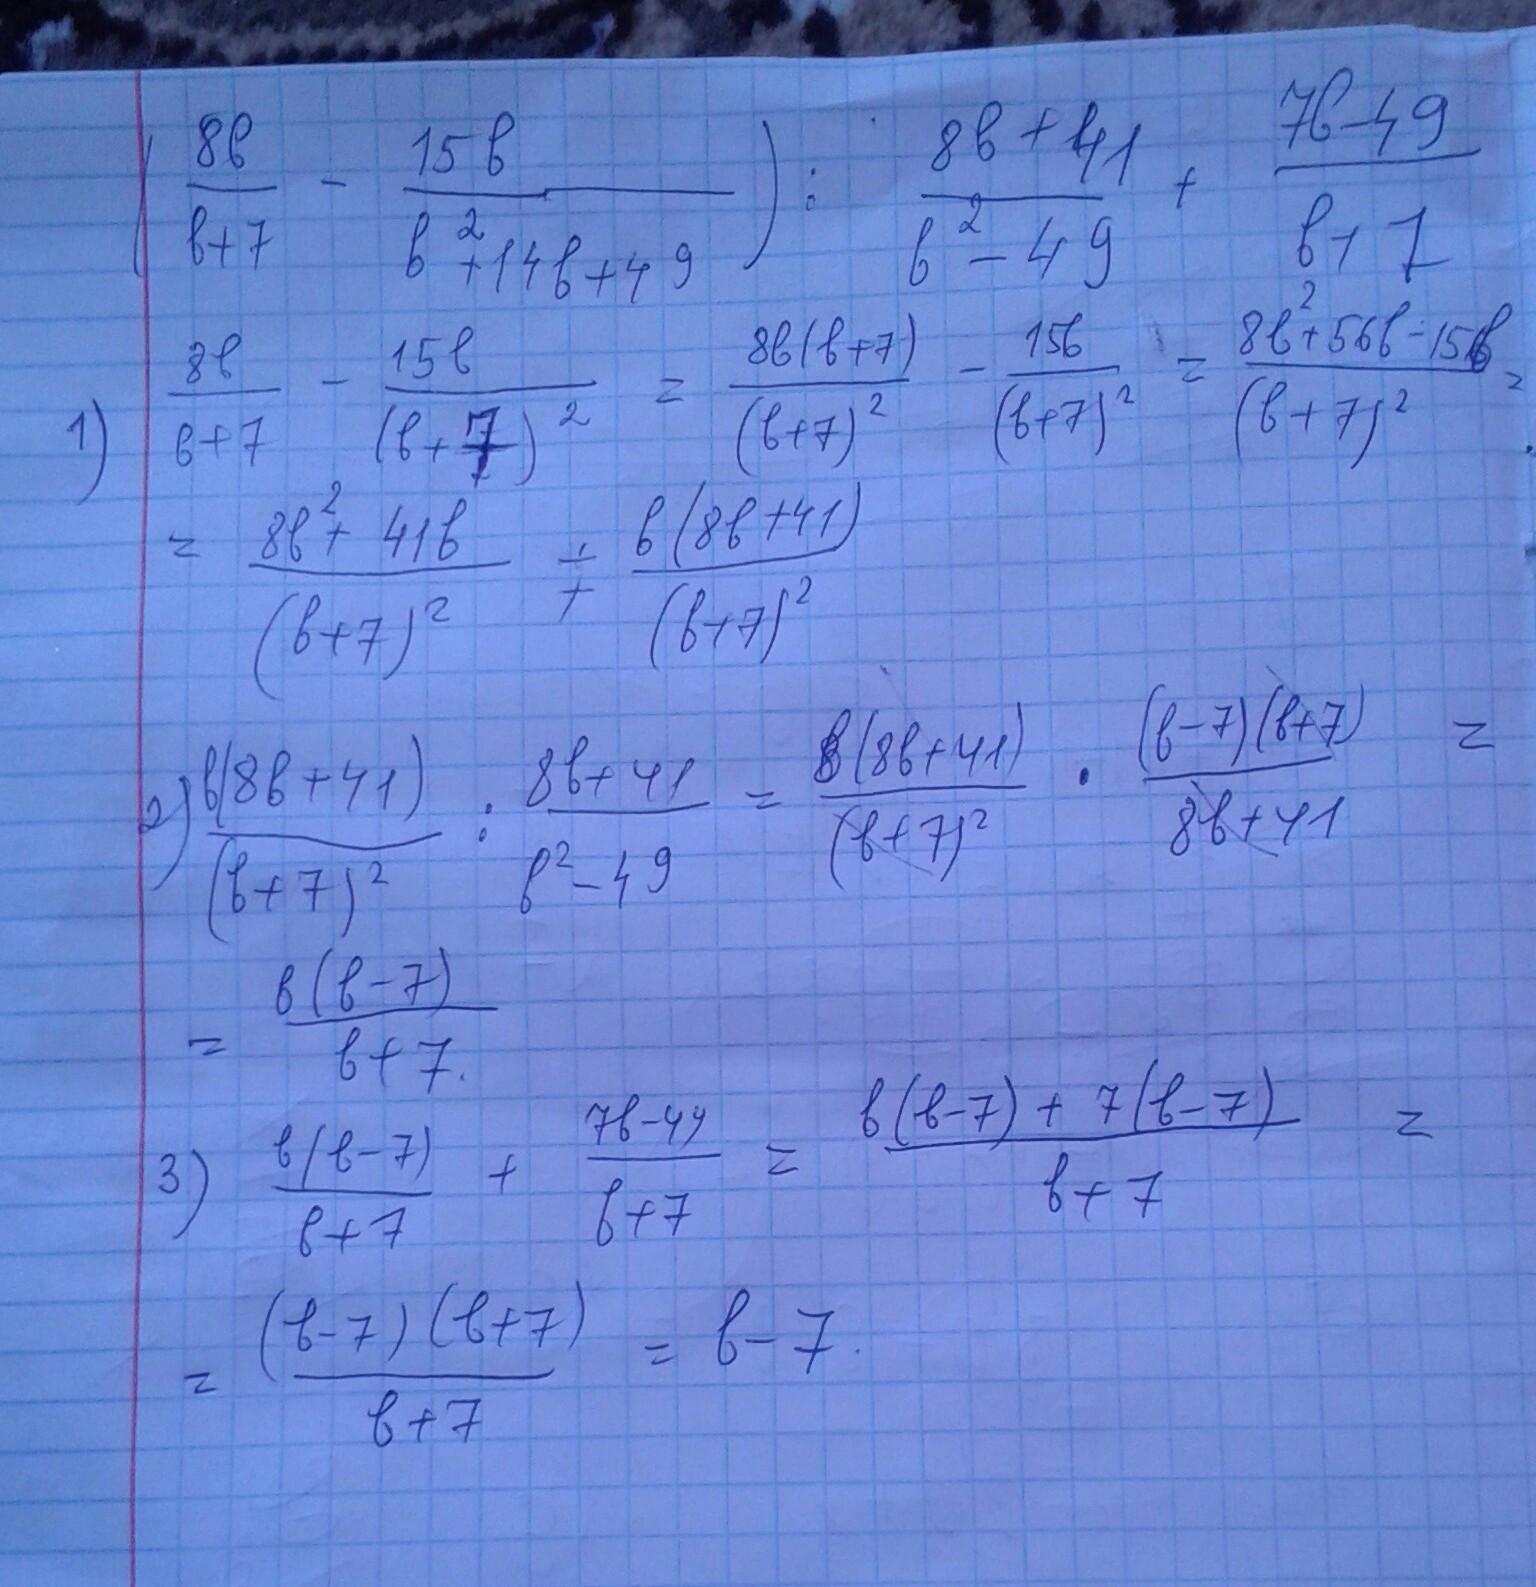 (8b/(b+7) - 15b/(b²+14b+49)) : (8b+41)/(b²-49) + (7b-49)/(b+7)
1) 8b/(b+7) - 15b/(b+7)² = 8b(b+7)/(b+7)² - 15b/(b+7)² = (8b²+56b-15b)/(b+7)² =
= (8b²+41b)/(b+7)² = b(8b+41)/(b+7)²
2) b(8b+41)/(b+7)² : (8b+41)/(b²-49) = b(8b+41)/(b+7)² · (b-7)(b+7)/(8b+41) =
= b(b-7)/(b+7).
3) b(b-7)/(b+7) + (7b-49)/(b+7) = (b(b-7)+7(b-7))/(b+7) =
= (b-7)(b+7)/(b+7) = b-7.